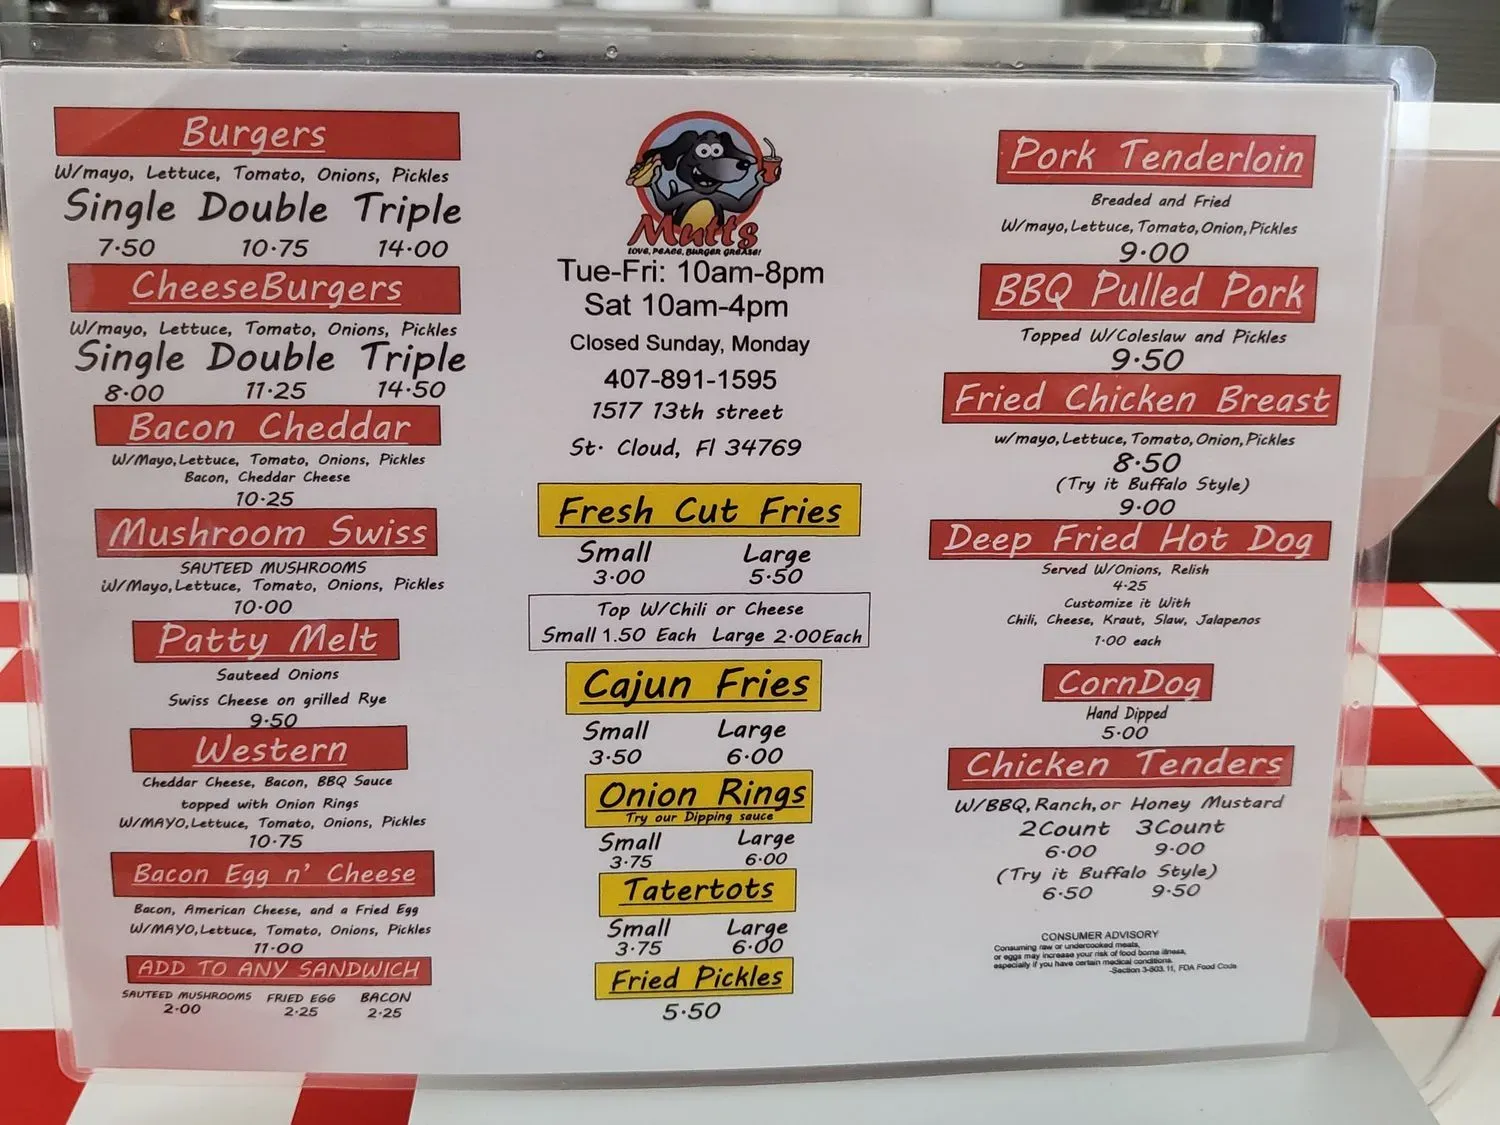 Burgers
W/mayo, Lettuce, Tomato, Onions, Pickles
Single Double Triple
7.50 10.75 14.00
CheeseBurgers
W/mayo, Lettuce, Tomato, Onions, Pickles
Single Double Triple
8.00 11.25 14.50
Bacon Cheddar
W/Mayo, Lettuce, Tomato, Onions, Pickles
Bacon, Cheddar Cheese
10.25
Mushroom Swiss
SAUTEED MUSHROOMS
W/Mayo, Lettuce, Tomato, Onions, Pickles
10.00
Patty Melt
Sauteed Onions
Swiss Cheese on grilled Rye
9.50
Western
Cheddar Cheese, Bacon, BBQ Sauce
topped with Onion Rings
W/MAYO, Lettuce, Tomato, Onions, Pickles
10.75
Bacon Egg n' Cheese
Bacon, American Cheese, and a Fried Egg
W/MAYO, Lettuce, Tomato, Onions, Pickles
11.00
ADD TO ANY SANDWICH
SAUTEED MUSHROOMS FRIED EGG BACON
2.00 2.25 2.25
Mutts
LOVE, PEACE, BURGER GREASE!
Tue-Fri: 10am-8pm
Sat 10am-4pm
Closed Sunday, Monday
407-891-1595
1517 13th street
St. Cloud, Fl 34769
Fresh Cut Fries
Small Large
3.00 5.50
Top W/Chili or Cheese
Small 1.50 Each Large 2.00Each
Cajun Fries
Small Large
3.50 6.00
Onion Rings
Try our Dipping sauce
Small Large
3.75 6.00
Tatertots
Small Large
3.75 6.00
Fried Pickles
5.50
Pork Tenderloin
Breaded and Fried
W/mayo, Lettuce, Tomato, Onion, Pickles
9.00
BBQ Pulled Pork
Topped W/Coleslaw and Pickles
9.50
Fried Chicken Breast
w/mayo, Lettuce, Tomato, Onion, Pickles
8.50
(Try it Buffalo Style)
9.00
Deep Fried Hot Dog
Served W/Onions, Relish
4.25
Customize it With
Chili, Cheese, Kraut, Slaw, Jalapenos
1.00 each
CornDog
Hand Dipped
5.00
Chicken Tenders
W/BBQ, Ranch, or Honey Mustard
2Count 3Count
6.00 9.00
(Try it Buffalo Style)
6.50 9.50
CONSUMER ADVISORY
Consuming raw or undercooked meats,
or eggs may increase your risk of food borne illness,
especially if you have certain medical conditions.
-Section 3-603.11, FDA Food Code